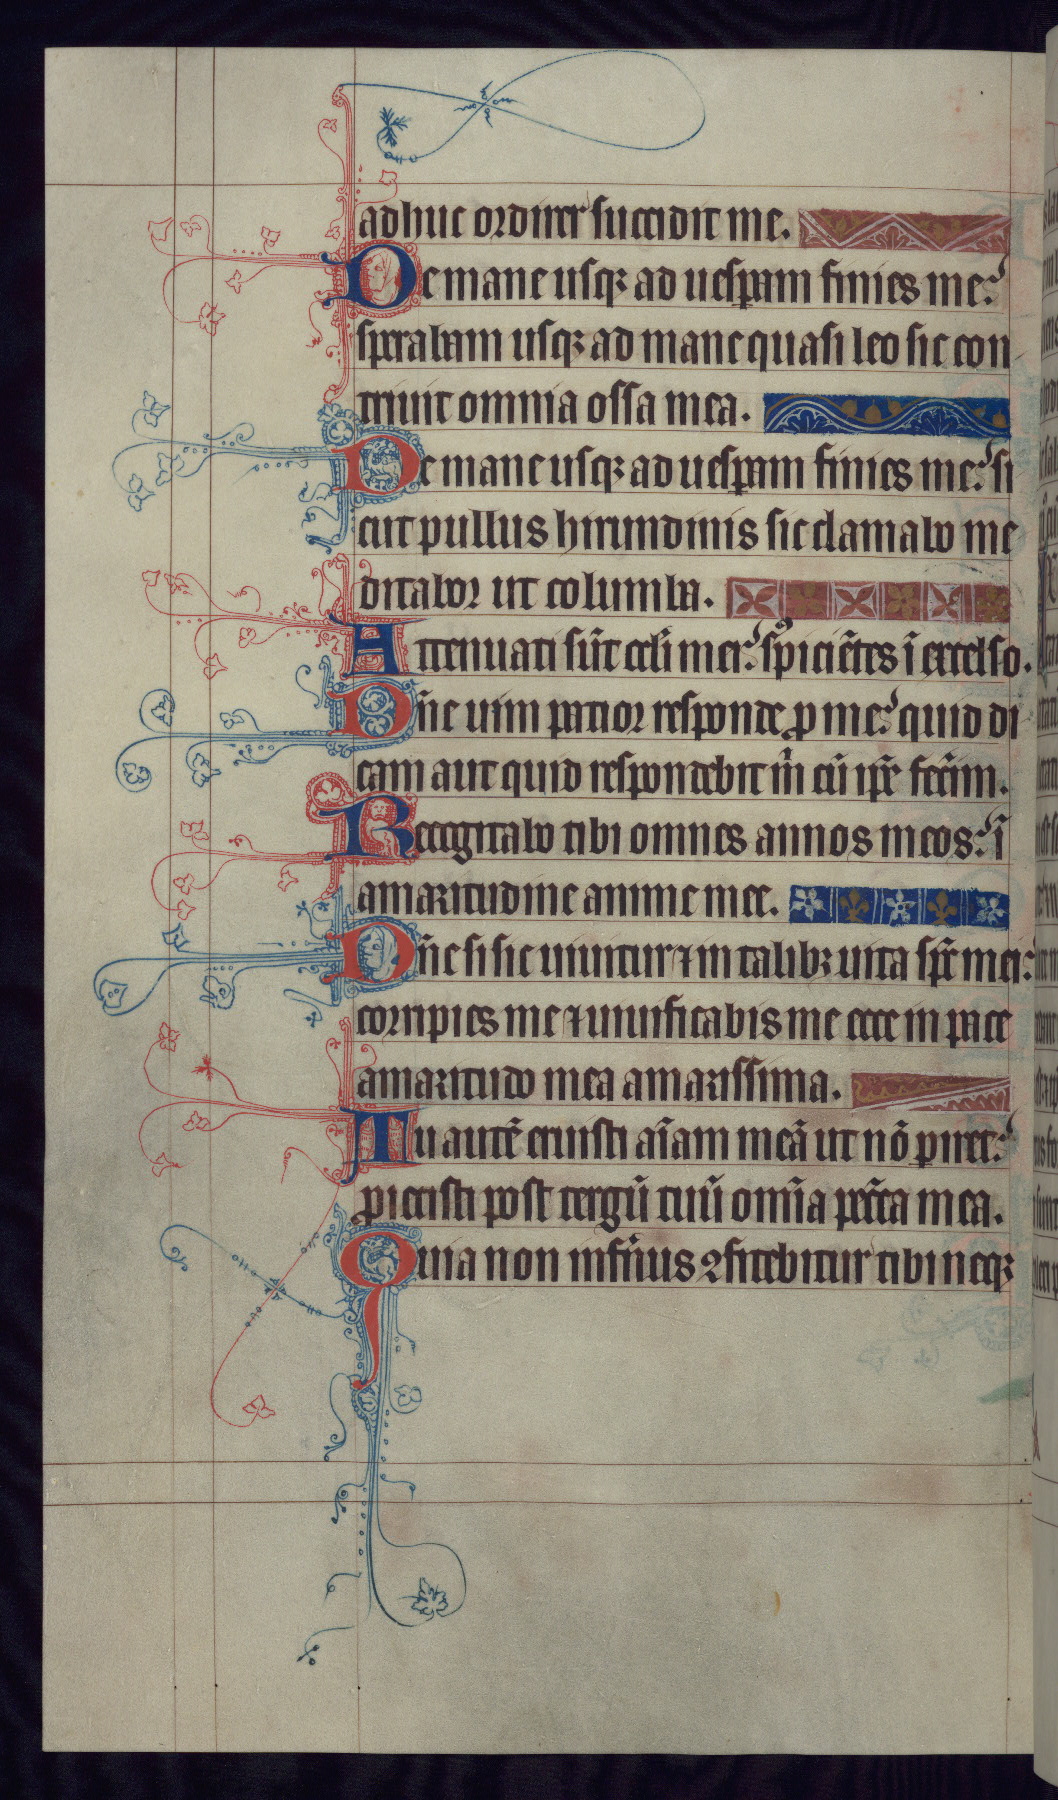 adhuc ordirer succidit me.
De mane usqꝫ ad uesꝑam finies me:
sperabam usqꝫ ad mane quasi leo sic con
triuit omnia ossa mea.
De mane usqꝫ ad uesꝑam finies me: si
cut pullus hirundinis sic clamabo me
ditabor ut columba.
Attenuati sūt celi mei: sꝰpiciētes ī excelso.
Dn̄e uim patior responde ꝓ me: quid di
cam aut quid respondebit m̄ cū ip̄e fec̄im.
Recogitabo tibi omnes annos meos: ī
amaritudine anime mee.
Dn̄e si sic uiuitur ⁊ in talibꝫ uita sp̄c mei:
corripies me ⁊ uiuificabis me ecce in pace
amaritudo mea amarissima.
Tu autē eruisti aīam meā ut nō ꝑiret:
ꝓiecisti post tergū tuū omīa pc̄ca mea.
Quia non inf̄nus ꝯfitebitur tibi neqꝫ